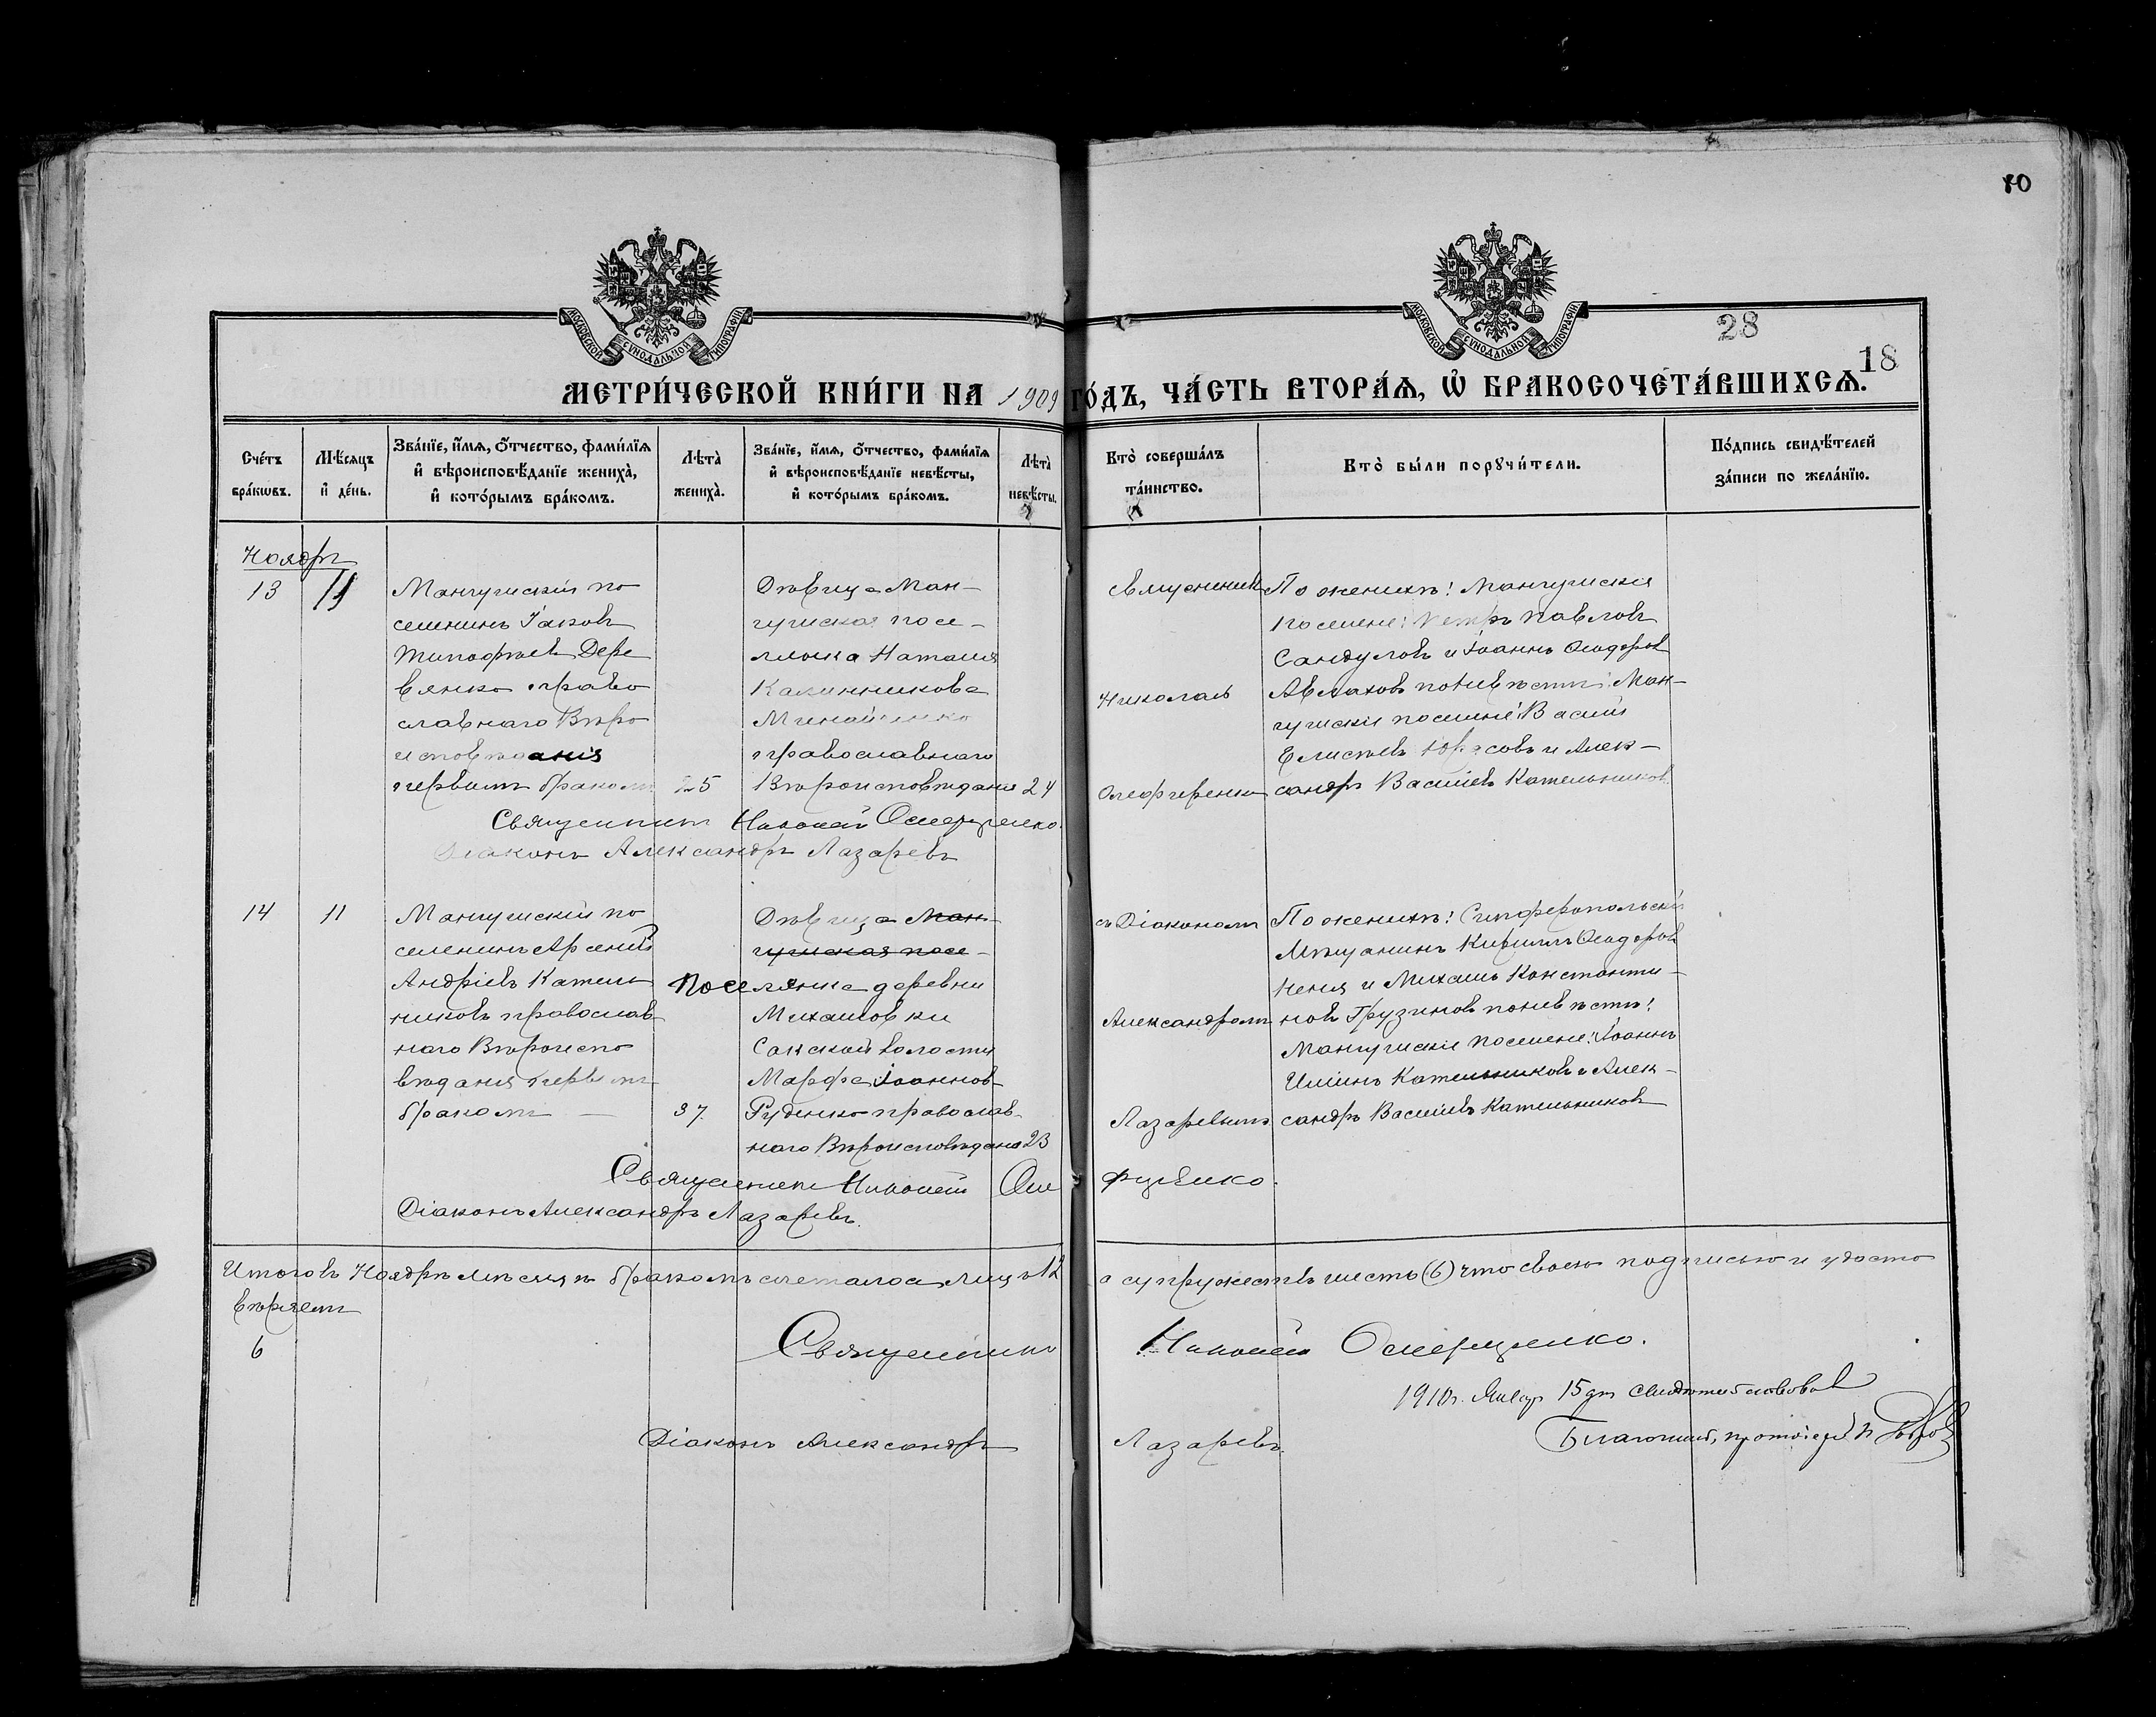 10
МОСКОВСКОЙ СУНОДАЛЬНОЙ ТИПОГРАФІИ
МОСКОВСКОЙ СУНОДАЛЬНОЙ ТИПОГРАФІИ
28
18
МЕТРИ́ЧЕСКОЙ КНИ́ГИ НА 1909 ГО́ДЪ, ЧА́СТЬ ВТОРА́Я, Ѡ҆ БРАКОСОЧЕТА́ВШИХСЯ.
Сче́тъ бра́кѡвъ.
Мѣ́сяцъ и҆ де́нь.
Зва́нїе, и҆́мя, ѻ҆́тчество, фами́лїя
и҆ вѣроисповѣ́данїе жениха̀,
и҆ кото́рымъ бра́комъ.
Лѣта̀ жениха̀.
Зва́нїе, и҆́мя, ѻ҆́тчество, фами́лїя
и҆ вѣроисповѣ́данїе невѣ́сты,
и҆ кото́рымъ бра́комъ.
Лѣта̀ невѣ́сты.
Кто̀ соверша́лъ та́инство.
Кто̀ бы́ли порꙋчи́тели.
По́дпись свидѣ́телей
за́писи по жела́нїю.
Ноябрь
13
11
Мангушскій по
селянинъ Іаковъ
Тимофѣевъ Дере
вянко право
славнаго Вѣро
исповѣданія
первымъ бракомъ
25
Дѣвица Ман-
гушская посе-
лянка Наталія
Калинникова
православнаго
Вѣроисповѣданія
24
Священникъ
Николай
Олеференко
По женихѣ: Мангушскіе
поселяне: Петръ Павловъ
Сандуловъ и Іоаннъ Ѳеодоровъ
Авлаховъ по невѣстѣ: Ман-
гушскіе поселяне: Василій
Елисѣевъ и Алек-
сандръ Василіевъ Котельниковъ
Священникъ Николай Олеференко.
Діаконъ Александръ Лазаревъ
14
11
Мангушскій по
селянинъ Арсеній
Андріевъ Котель
никовъ православ
наго Вѣроиспо
вѣданія первымъ
бракомъ —
37.
Дѣвица Ман-
гушская посе-
Поселянка деревни
Михаиловки
Сакской волости
Марфа Іоаннов
Руденко православ-
наго Вѣроисповѣданія
23
съ Діакономъ
Александромъ
Лазаревымъ
По женихѣ: Симферопольскій
Мѣщанинъ Кириллъ Ѳеодоровъ
и Михаилъ Константи-
новъ Грузиновъ по невѣстѣ:
Мангушскіе поселяне: Іоаннъ
Иліинъ Котельниковъ и Алек-
сандръ Василіевъ Котельниковъ
Священникъ Николай Олеференко.
Діаконъ Александръ Лазаревъ.
Итого въ Ноябрѣ мѣсяцѣ бракомъ сочеталось лицъ 12
а супружествъ шесть (6) что своею подписью и удосто
вѣряемъ
6
Священникъ Николай Олеференко.
1910 г. Янвр 15 дня свидѣтельствовалъ
Діаконъ Александръ Лазаревъ.
Благочинный, протоіерей